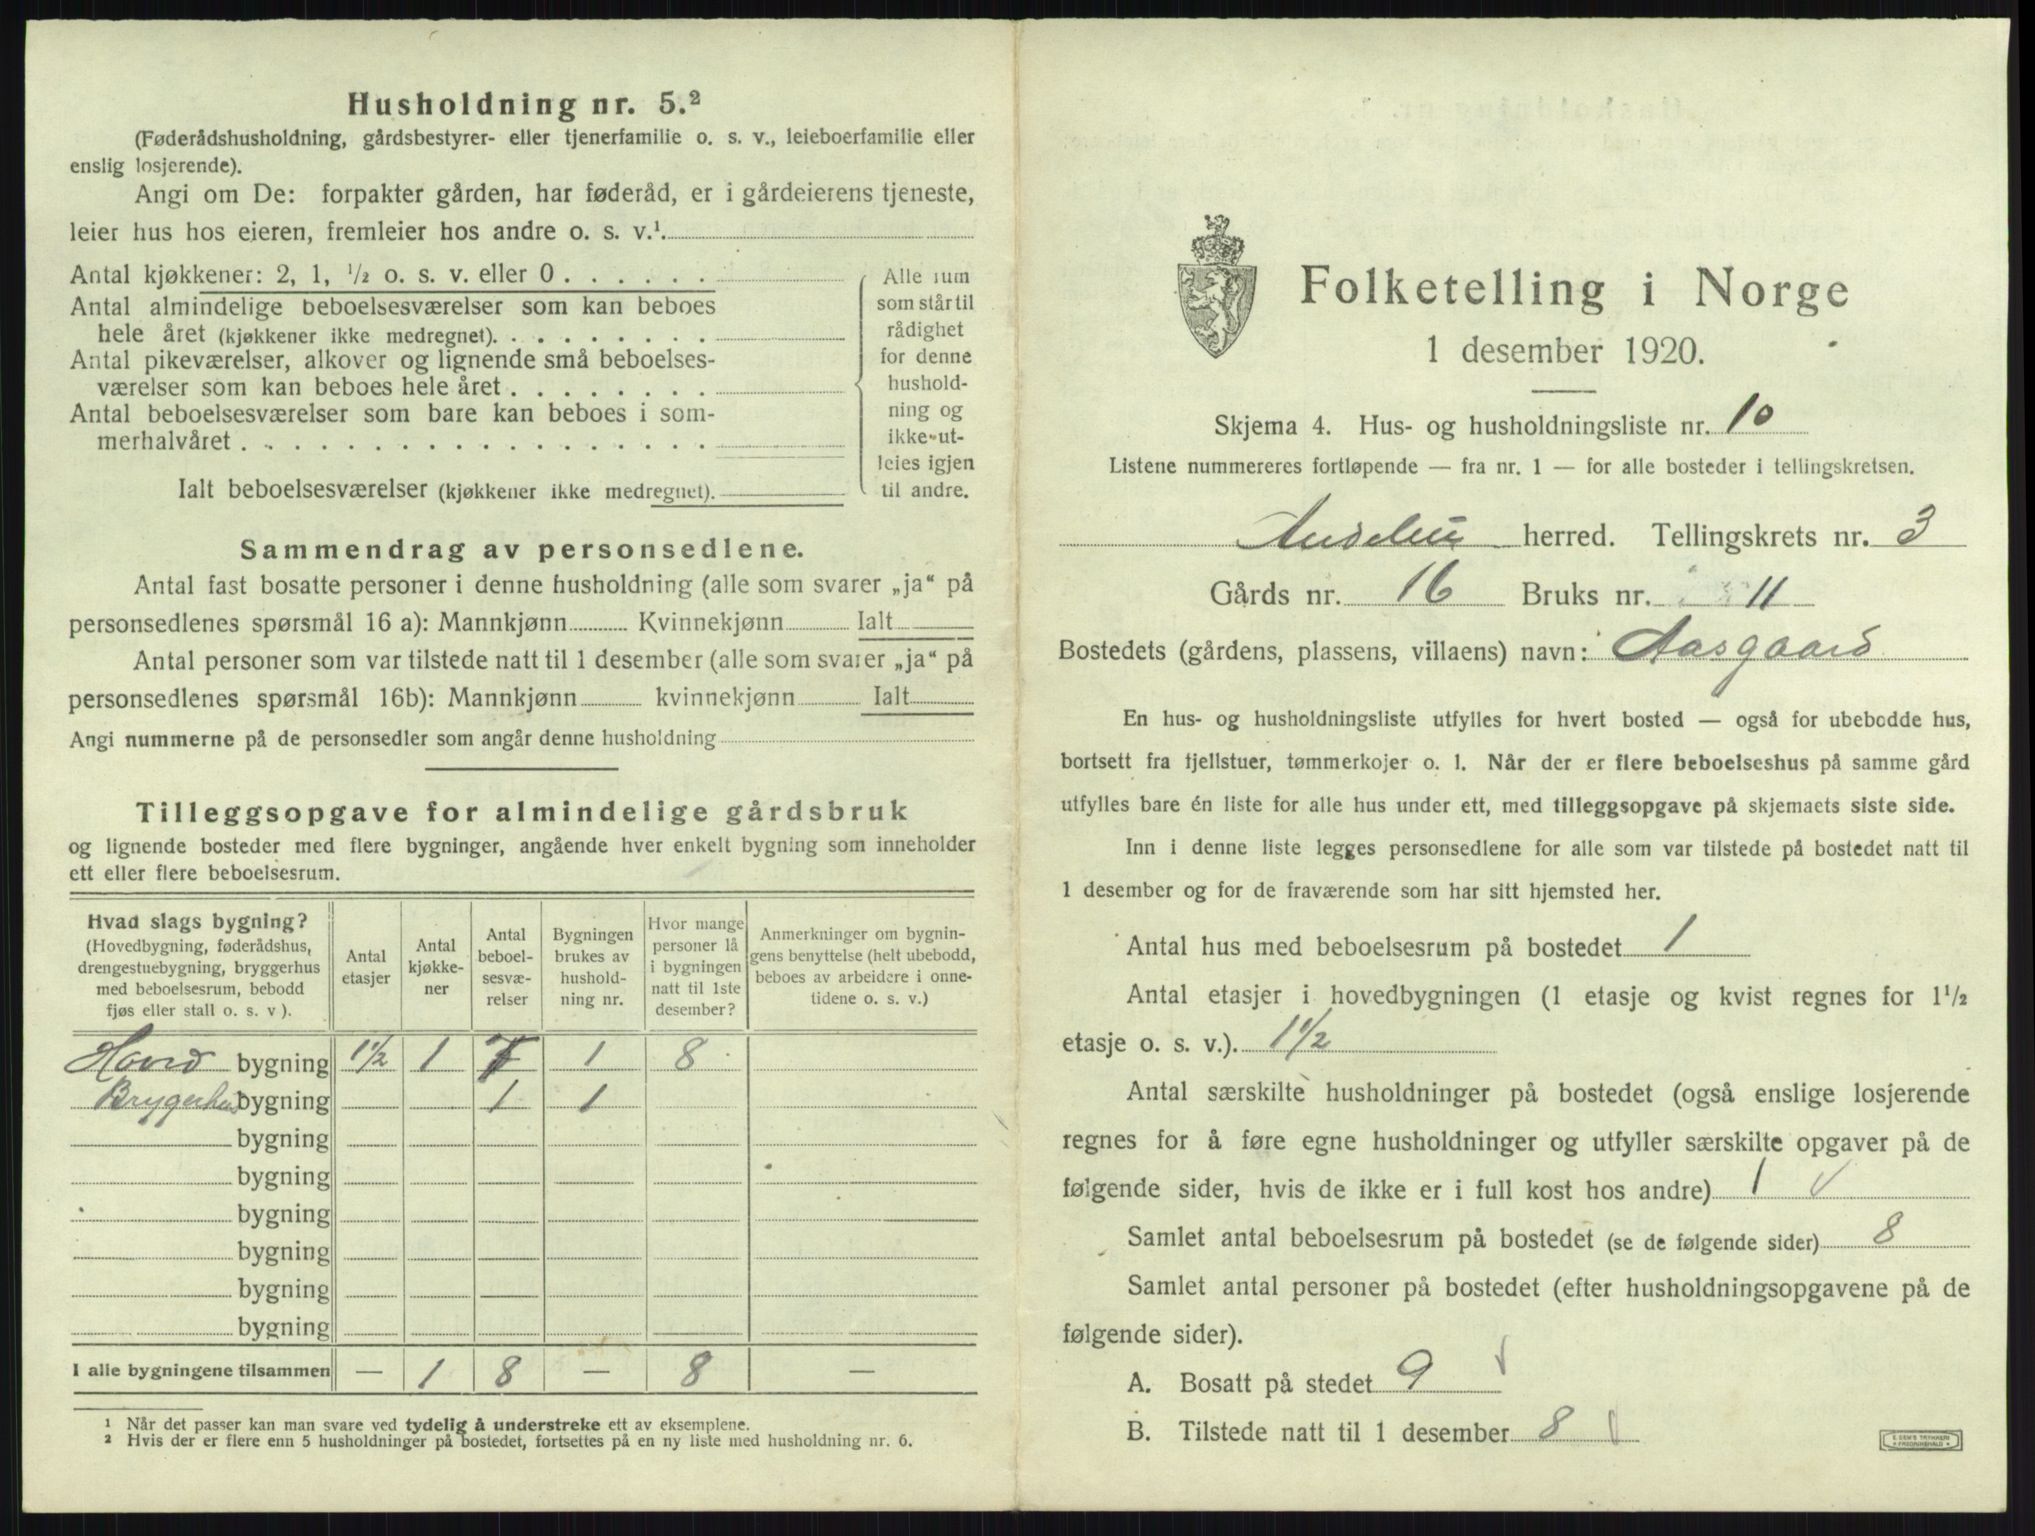 Husholdning nr. 5.²
(Føderådshusholdning, gårdsbestyrer- eller tjenerfamilie o. s. v., leieboerfamilie eller
enslig losjerende).
Angi om De: forpakter gården, har føderåd, er i gårdeierens tjeneste,
leier hus hos eieren, fremleier hos andre o. s. v.¹
Antal kjøkkener: 2, 1, ½ o. s. v. eller 0
Antal almindelige beboelsesværelser som kan beboes
hele året (kjøkkener ikke medregnet)
Antal pikeværelser, alkover og lignende små beboelses-
værelser som kan beboes hele året
Antal beboelsesværelser som bare kan beboes i som-
merhalvåret
Ialt beboelsesværelser (kjøkkener ikke medregnet)
Alle rum
som står til
rådighet
for denne
hushold-
ning og
ikke ut-
leies igjen
til andre.
Sammendrag av personsedlene.
Antal fast bosatte personer i denne husholdning (alle som svarer „ja“ på
personsedlenes spørsmål 16 a): Mannkjønn Kvinnekjønn Ialt
Antal personer som var tilstede natt til 1 desember (alle som svarer „ja“ på
personsedlenes spørsmål 16b): Mannkjønn kvinnekjønn Ialt
Angi nummerne på de personsedler som angår denne husholdning
Tilleggsopgave for almindelige gårdsbruk
og lignende bosteder med flere bygninger, angående hver enkelt bygning som inneholder
ett eller flere beboelsesrum.
Hvad slags bygning?
(Hovedbygning, føderådshus,
drengestuebygning, bryggerhus
med beboelsesrum, bebodd
fjøs eller stall o. s. v ).
Antal
etasjer
Antal
kjøkke-
ner
Antal
beboel-
sesvæ-
relser
Bygningen
brukes av
hushold-
ning nr.
Hvor mange
personer lå
i bygningen
natt til 1ste
desember?
Anmerkninger om bygnin-
gens benyttelse (helt ubebodd,
beboes av arbeidere i onne-
tidene o. s. v.)
Hoved bygning 1½ 1 7 1 8
Brygerhus bygning 1 1
bygning
bygning
bygning
bygning
bygning
bygning
I alle bygningene tilsammen — 1 8 — 8 —
¹ Når det passer kan man svare ved tydelig å understreke ett av eksemplene.
² Hvis der er flere enn 5 husholdninger på bostedet, fortsettes på en ny liste med husholdning nr. 6.
Folketelling i Norge
1 desember 1920.
Skjema 4. Hus- og husholdningsliste nr. 10
Listene nummereres fortløpende — fra nr. 1 — for alle bosteder i tellingskretsen.
Andebu herred. Tellingskrets nr. 3
Gårds nr. 16 Bruks nr. 11
Bostedets (gårdens, plassens, villaens) navn: Aasgaard
En hus- og husholdningsliste utfylles for hvert bosted — også for ubebodde hus,
bortsett fra fjellstuer, tømmerkojer o. l. Når der er flere beboelseshus på samme gård
utfylles bare én liste for alle hus under ett, med tilleggsopgave på skjemaets siste side.
Inn i denne liste legges personsedlene for alle som var tilstede på bostedet natt til
1 desember og for de fraværende som har sitt hjemsted her.
Antal hus med beboelsesrum på bostedet 1
Antal etasjer i hovedbygningen (1 etasje og kvist regnes for 1½
etasje o. s. v.). 1½
Antal særskilte husholdninger på bostedet (også enslige losjerende
regnes for å føre egne husholdninger og utfyller særskilte opgaver på de
følgende sider, hvis de ikke er i full kost hos andre) 1 √
Samlet antal beboelsesrum på bostedet (se de følgende sider) 8
Samlet antal personer på bostedet (efter husholdningsopgavene på de
følgende sider).
A. Bosatt på stedet 9 √
B. Tilstede natt til 1 desember 8 √
E. SEM'S TRYKKERI
FREDRIKSHALD